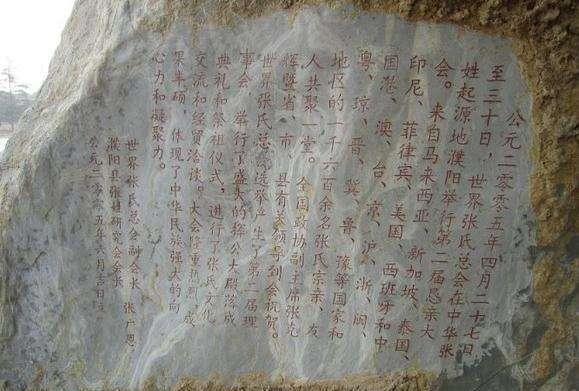 公元二零零五年四月二十七日
至三十日,世界张氏总会在中华张
姓起源地濮阳举行第二届恳亲大
会。来自马来西亚、新加坡、泰国、
印尼、菲律宾、美国、西班牙和中
国港、澳、台、京、沪、浙、闽、
粤、琼、晋、冀、鲁、豫等国家和
地区的一千六百余名张氏宗亲、友
人共聚一堂。全国政协副主席张克
辉暨省、市、县有关领导到会祝贺。
世界张氏总会选举产生了第二届理
事会,举行了盛大的挥公大殿落成
典礼和祭祖仪式,进行了张氏文化
交流和经贸洽谈。大会隆重热烈,成
果丰硕,体现了中华民族强大的向
心力和凝聚力。
世界张氏总会副会长
濮阳县张挥研究会会长 张广恩
公元二零零五年 月吉日